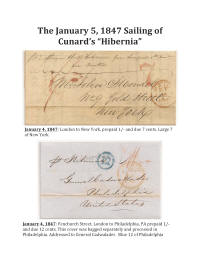 The January 5, 1847 Sailing of
Cunard's "Hibernia"
New York
January 4, 1847: London to New York, prepaid 1/- and due 7 cents. Large 7
of New York.
Philadelphia
United States
January 4, 1847: Fenchurch Street, London to Philadelphia, PA prepaid 1/-
and due 12 cents. This cover was bagged separately and processed in
Philadelphia. Addressed to General Cadwalader. Blue 12 of Philadelphia